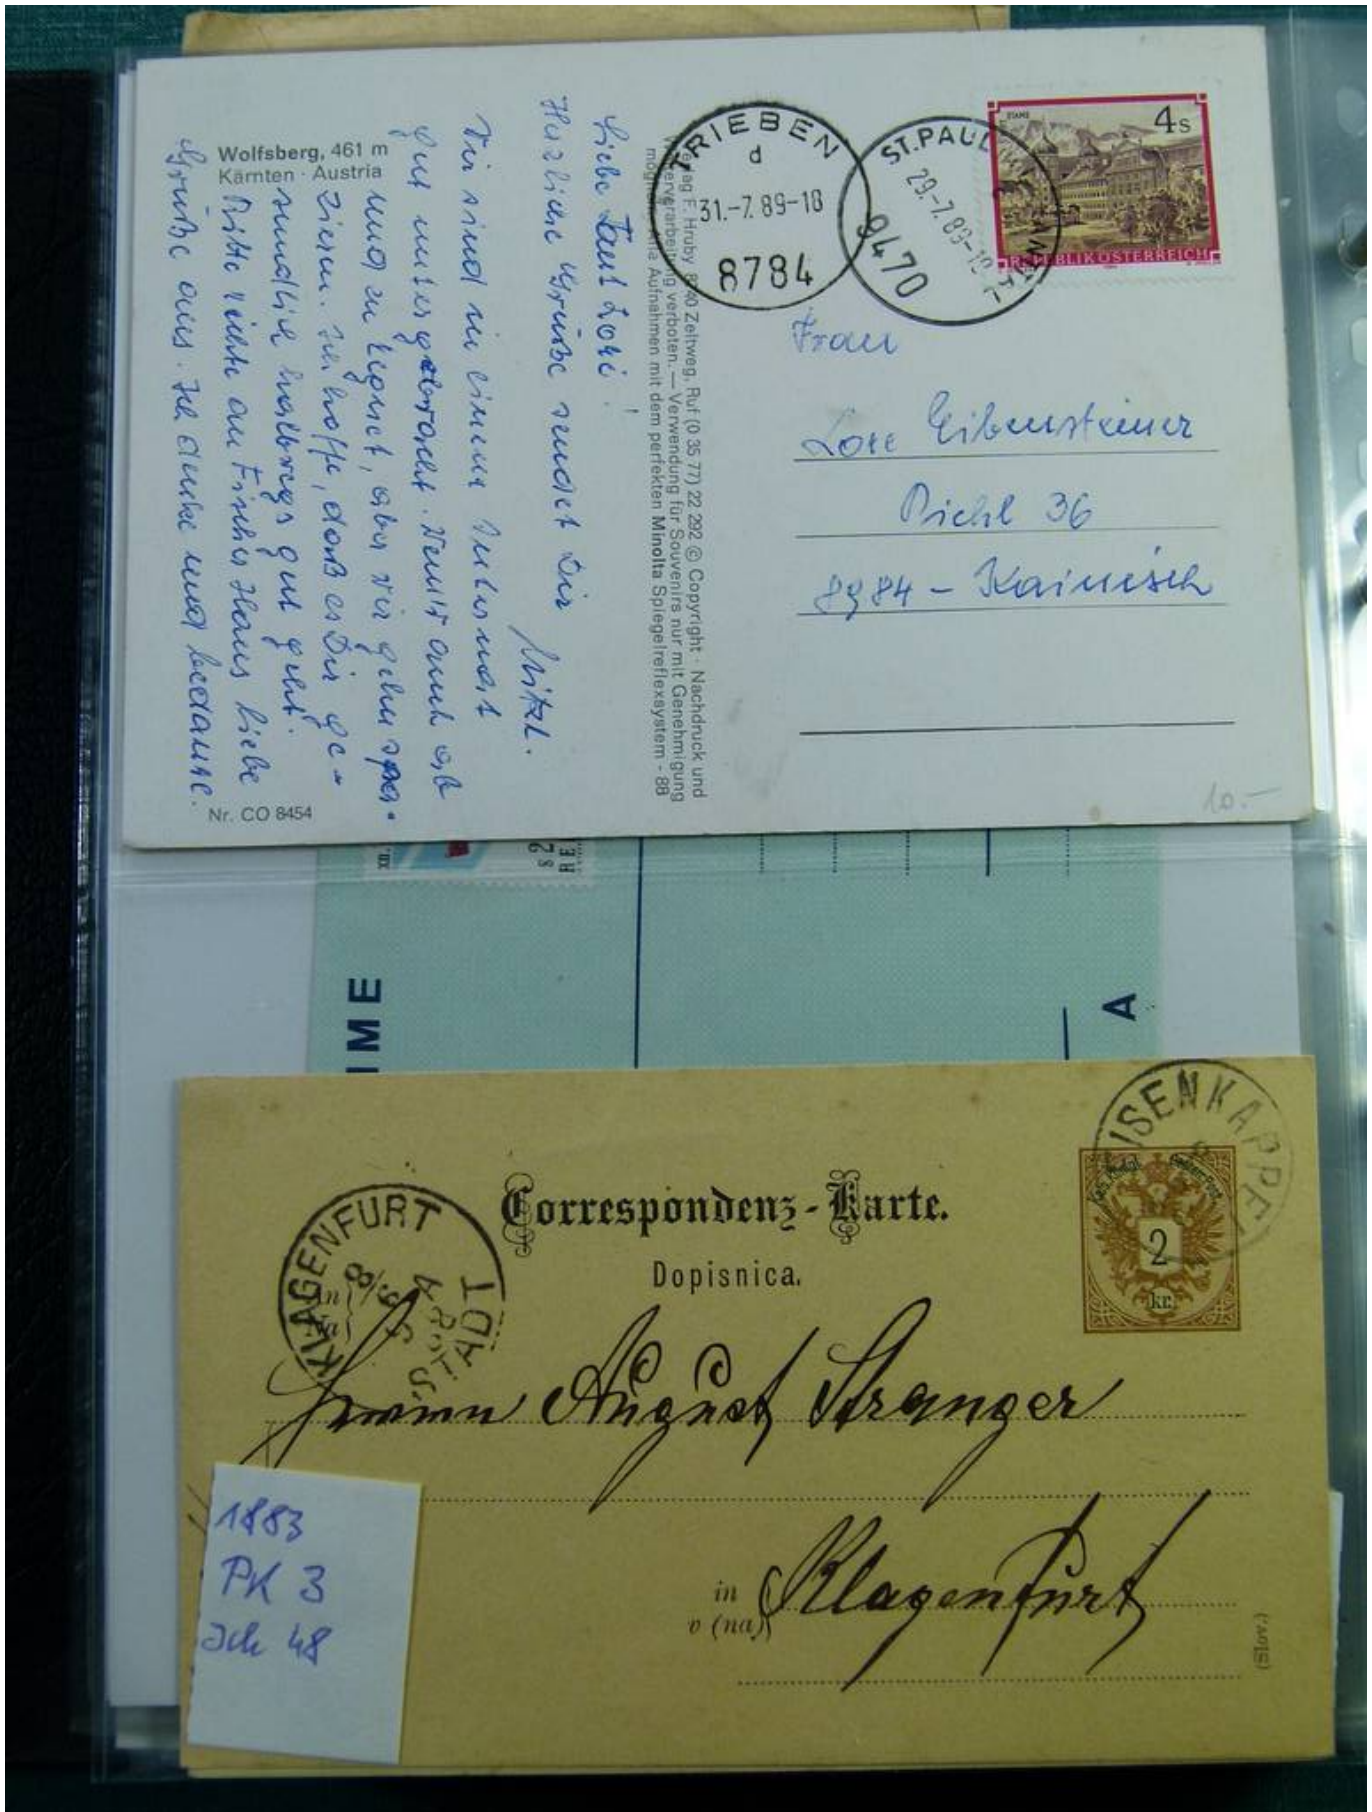 Wolfsberg, 461 m
Kärnten · Austria
Liebe Tant Lori!
Herzliche Grüße sendet Dir
Mitzl.
Wir sind in einem Internat
gut untergebracht. Wenn auch ab
und zu regnet, aber wir gehn spa-
zieren. Ich hoffe, daß es Dir ge-
sundlich halbwegs gut geht.
Bitte richte an Fischer Haus liebe
Grüße aus. Ich danke und bedanke.
Nr. CO 8454
Verlag F. Hruby 8740 Zeltweg, Ruf (0 35 77) 22 292 © Copyright · Nachdruck und
Weiterverarbeitung verboten. — Verwendung für Souvenirs nur mit Genehmigung
Aufnahmen mit dem perfekten Minolta Spiegelreflexsystem - 88
TRIEBEN
d
31.-7.89-18
8784
ST. PAUL
29.-7.89-12
9470
STAMS
4 s
REPUBLIK ÖSTERREICH
Frau
Lore Eibensteiner
Pichl 36
8984 - Kainisch
10.-
2 s
IME
A
Correspondenz-Karte.
Dopisnica.
KLAGENFURT
STADT
EISENKAPPEL
2
kr.
Herrn August Stranger
in
v (na)
Klagenfurt
(Slov.)
1883
PK 3
Sch 48